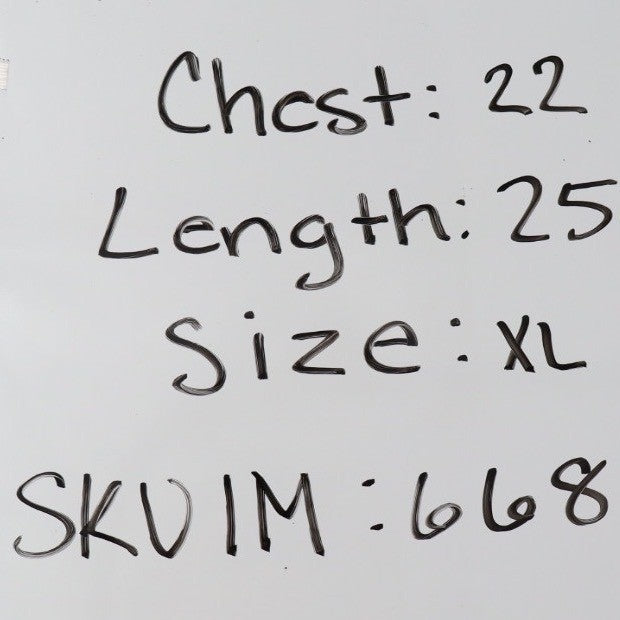 Chest: 22
Length: 25
Size: XL
SKUIM: 668